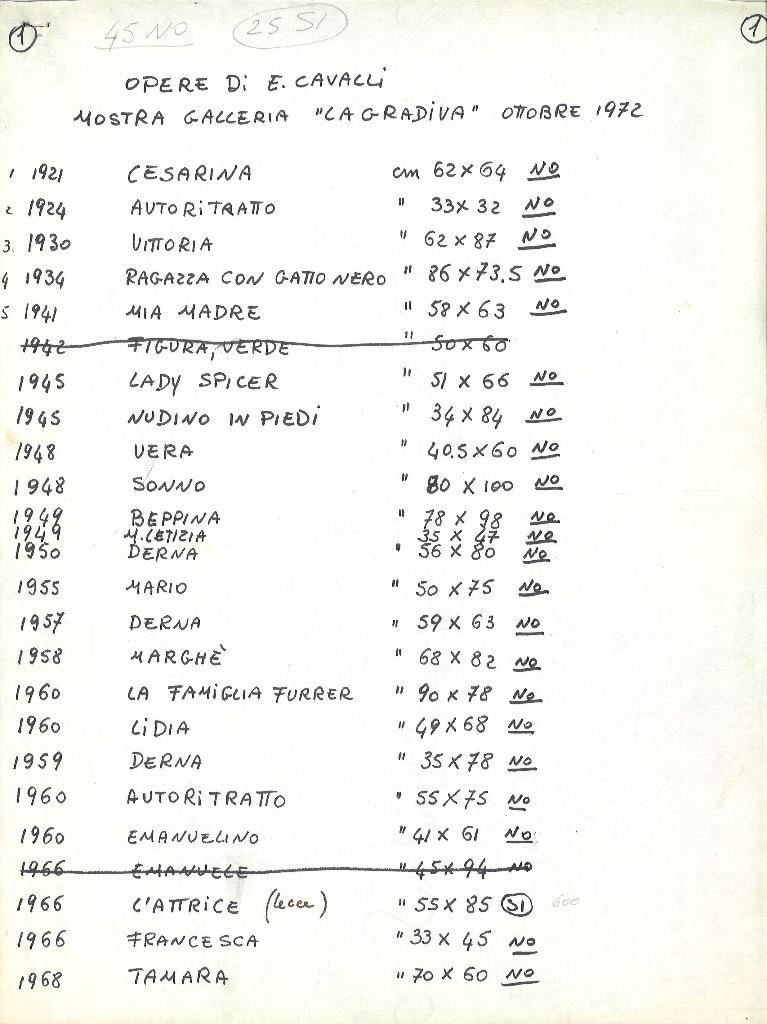 1 45 NO 25 SI 1
OPERE Di E. CAVALLi
MOSTRA GALLERIA "LA GRADIVA" OTTOBRE 1972
1 1921 CESARINA cm 62 X 64 NO
2 1924 AUTORiTRATTO " 33 X 32 NO
3. 1930 ViTTORIA " 62 X 87 NO
4 1934 RAGAZZA CON GATTO NERO " 86 X 73.5 NO
5 1941 MIA MADRE " 58 X 63 NO
1942 FIGURA, VERDE " 50 X 60
1945 LADY SPICER " 51 X 66 NO
1945 NUDINO IN PIEDi " 34 X 84 NO
1948 VERA " 40.5 X 60 NO
1948 SONNO " 80 X 100 NO
1949 BEPPINA " 78 X 98 NO
1949 M. LETIZIA 35 X 47 NO
1950 DERNA " 56 X 80 NO
1955 MARIO " 50 X 75 NO
1957 DERNA " 59 X 63 NO
1958 MARGHÈ " 68 X 82 NO
1960 LA FAMiGLIA FURRER " 90 X 78 NO
1960 LiDIA " 49 X 68 NO
1959 DERNA " 35 X 78 NO
1960 AUTORiTRATTO " 55 X 75 NO
1960 EMANUELINO " 41 X 61 NO
1966 EMANUELE " 45 X 94 NO
1966 L'ATTRICE (Lecce) " 55 X 85 SI 600
1966 FRANCESCA " 33 X 45 NO
1968 TAMARA " 70 X 60 NO